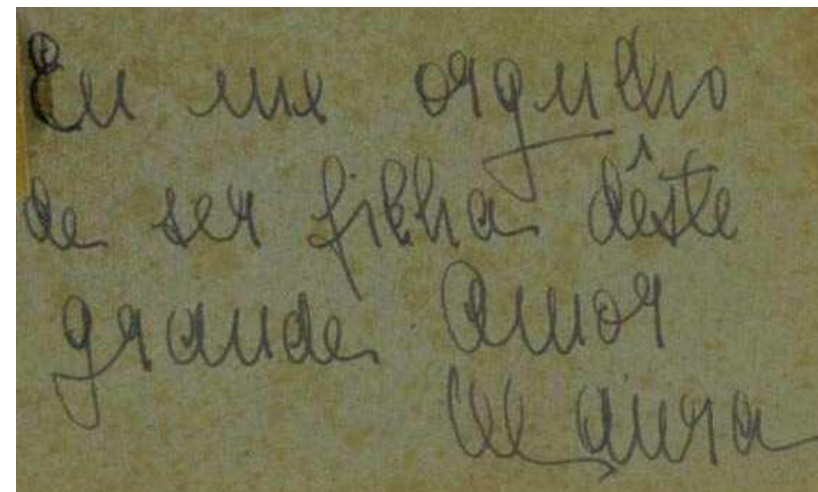 Eu me orgulho
de ser filha dêste
grande amor
Maura